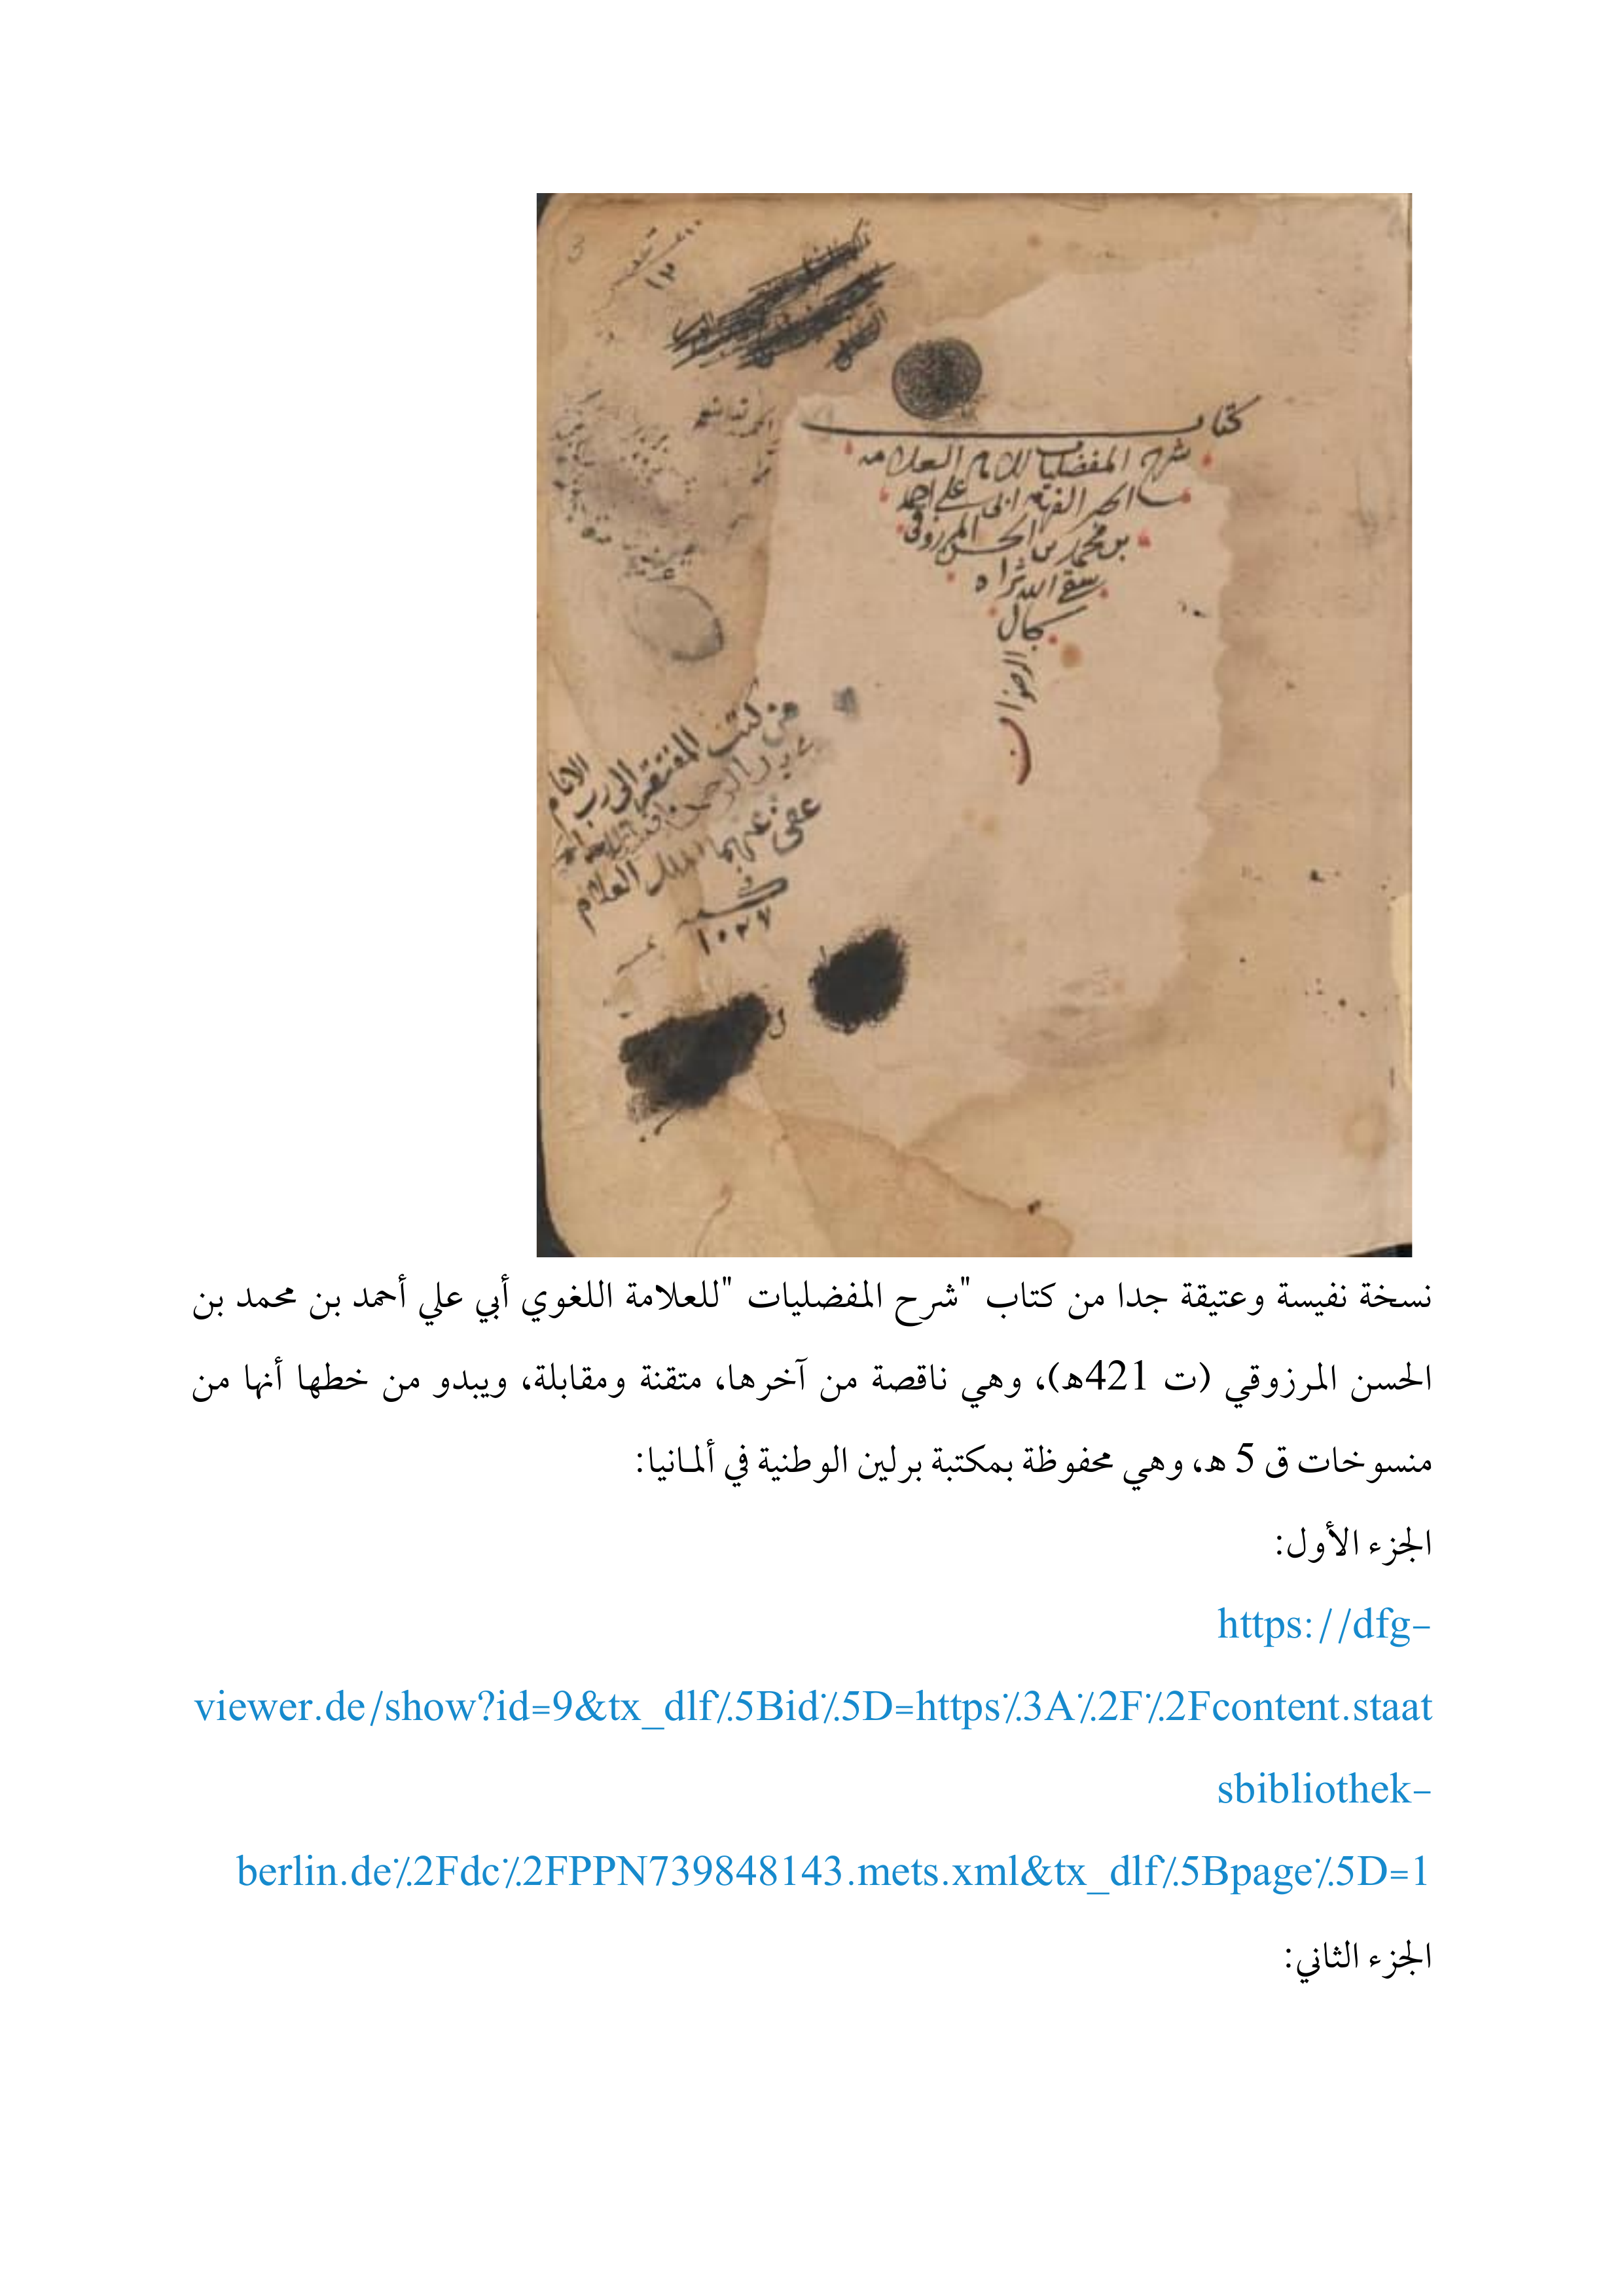 كتاب
شرح المفضليات للامام العلامه
الحبر الفهامة ابى على احمد
بن محمد بن الحسن المرزوقى
سقى الله ثراه
سجال
الرضوان
من كتب المفتقر الى رب الانام
عبد الرحمن
عفى عنهما الملك العلام
فى سنة
١٠٢٧
3
نسخة نفيسة وعتيقة جدا من كتاب "شرح المفضليات "للعلامة اللغوي أبي علي أحمد بن محمد بن
الحسن المرزوقي (ت 421ه)، وهي ناقصة من آخرها، متقنة ومقابلة، ويبدو من خطها أنها من
منسوخات ق 5 ه، وهي محفوظة بمكتبة برلين الوطنية في ألمانيا:
الجزء الأول:
https://dfg-
viewer.de/show?id=9&tx_dlf%5Bid%5D=https%3A%2F%2Fcontent.staat
sbibliothek-
berlin.de%2Fdc%2FPPN739848143.mets.xml&tx_dlf%5Bpage%5D=1
الجزء الثاني: